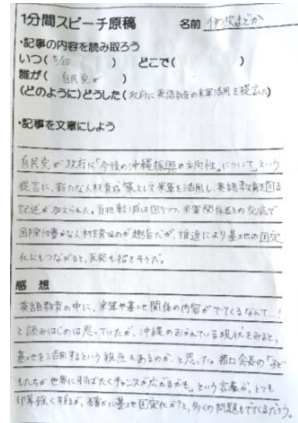 1分間スピーチ原稿 名前
・記事の内容を読み取ろう
いつ( ) どこで( )
誰が( 自民党が )
(どのように)どうした(政府に英語教育の米軍活用を提言した)
・記事を文章にしよう
自民党が政府に「今後の沖縄振興の方向性」についてという
提言に、新たな人材育成策として米軍を活用し、英語教育を図る
記述が加えられた。基地負担は図りつつ、米軍関係者との交流で
国際色豊かな人材を育むのが趣旨だが、推進により基地の固定
化にもつながると、反発も招きそうだ。
感想
英語教育の中に、米軍や基地関係の内容がでてくるなんて…!
と読みはじめは思っていたが、沖縄のおかれている現状をみると、
基地を活用するという視点もあるのか、と思った。 会長の「子ど
もたちが世界に羽ばたくチャンスが広がるかも」という言葉が、とても
印象強く残るが、 基地固定化か?と、多くの問題もでてくるだろう。